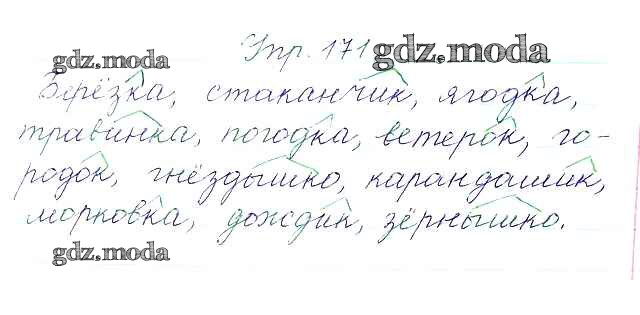 gdz.moda Упр. 171 gdz.moda
Берёзка, стаканчик, ягодка,
травинка, погодка, ветерок, го-
родок, гнёздышко, карандашик,
морковка, дождик, зёрнышко.
gdz.moda